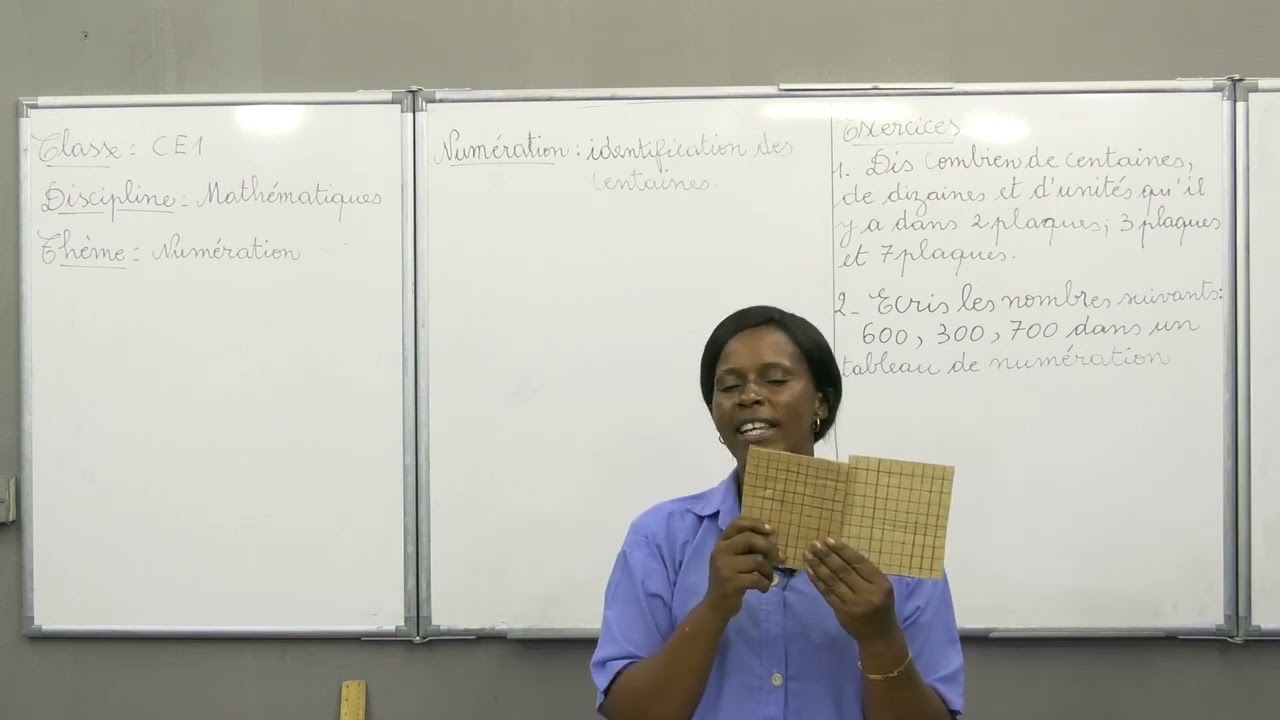 Classe : CE1
Discipline : Mathématiques
Thème : Numération
Numération : identification des
centaines.
Exercices
1. Dis combien de centaines,
de dizaines et d'unités qu'il
y a dans 2 plaques ; 3 plaques
et 7 plaques.
2 - Ecris les nombres suivants :
600, 300, 700 dans un
tableau de numération